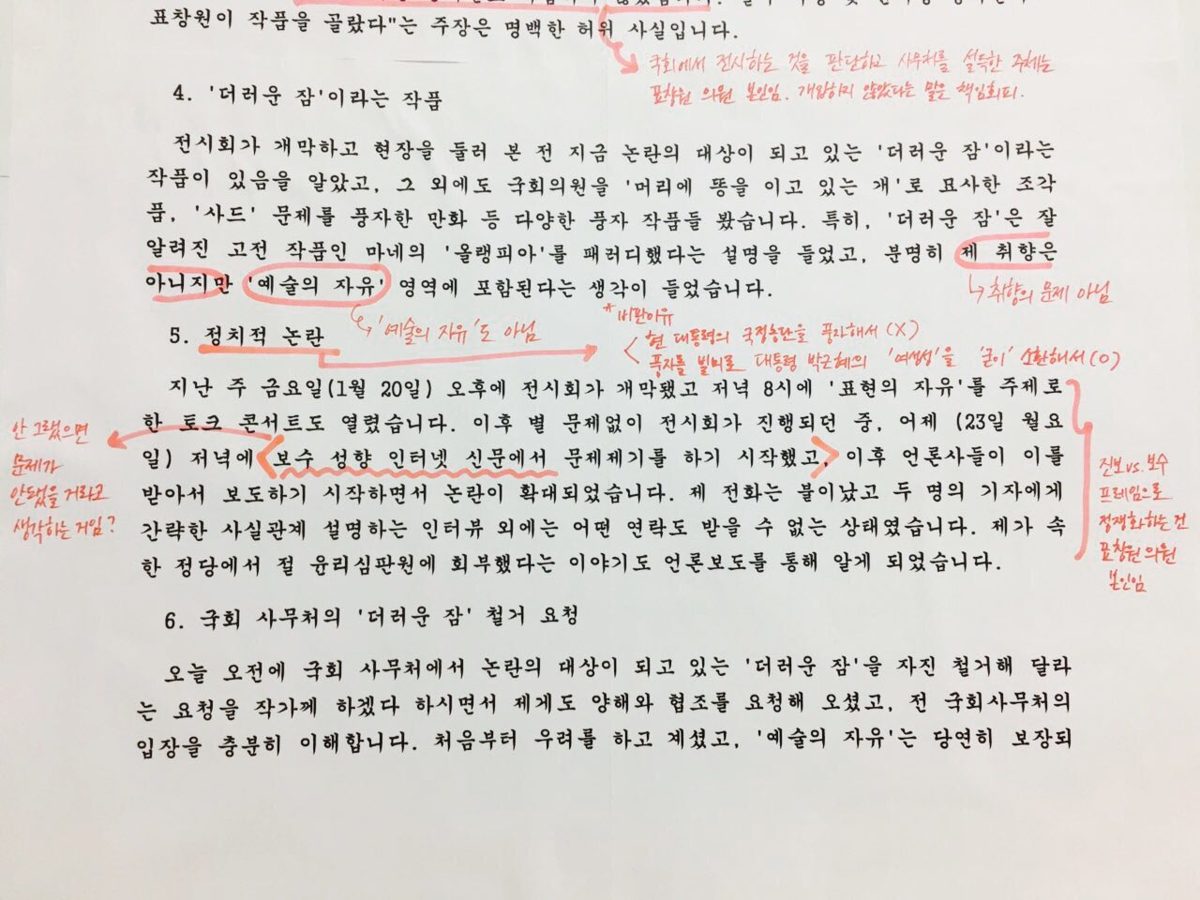 표창원이 작품을 골랐다"는 주장은 명백한 허위 사실입니다.
국회에서 전시하는 것을 판단하고 사무처를 설득한 주체는
표창원 의원 본인임. 개입하지 않았다는 말은 책임회피.
4. '더러운 잠'이라는 작품
전시회가 개막하고 현장을 둘러 본 전 지금 논란의 대상이 되고 있는 '더러운 잠'이라는
작품이 있음을 알았고, 그 외에도 국회의원을 '머리에 똥을 이고 있는 개'로 묘사한 조각
품, '사드' 문제를 풍자한 만화 등 다양한 풍자 작품들 봤습니다. 특히, '더러운 잠'은 잘
알려진 고전 작품인 마네의 '올랭피아'를 패러디했다는 설명을 들었고, 분명히 제 취향은
아니지만 '예술의 자유' 영역에 포함된다는 생각이 들었습니다.
취향의 문제 아님
'예술의 자유'도 아님
* 비판이유
현 대통령의 국정농단을 풍자해서 (X)
풍자를 빌미로 대통령 박근혜의 '여성성'을 '굳이' 소환해서 (O)
5. 정치적 논란
지난 주 금요일(1월 20일) 오후에 전시회가 개막됐고 저녁 8시에 '표현의 자유'를 주제로
한 토크 콘서트도 열렸습니다. 이후 별 문제없이 전시회가 진행되던 중, 어제 (23일 월요
일) 저녁에 보수 성향 인터넷 신문에서 문제제기를 하기 시작했고, 이후 언론사들이 이를
받아서 보도하기 시작하면서 논란이 확대되었습니다. 제 전화는 불이났고 두 명의 기자에게
간략한 사실관계 설명하는 인터뷰 외에는 어떤 연락도 받을 수 없는 상태였습니다. 제가 속
한 정당에서 절 윤리심판원에 회부했다는 이야기도 언론보도를 통해 알게 되었습니다.
안 그랬으면
문제가
안됐을 거라고
생각하는 거임?
진보 vs. 보수
프레임으로
정쟁화하는 건
표창원 의원
본인임
6. 국회 사무처의 '더러운 잠' 철거 요청
오늘 오전에 국회 사무처에서 논란의 대상이 되고 있는 '더러운 잠'을 자진 철거해 달라
는 요청을 작가께 하겠다 하시면서 제게도 양해와 협조를 요청해 오셨고, 전 국회사무처의
입장을 충분히 이해합니다. 처음부터 우려를 하고 계셨고, '예술의 자유'는 당연히 보장되